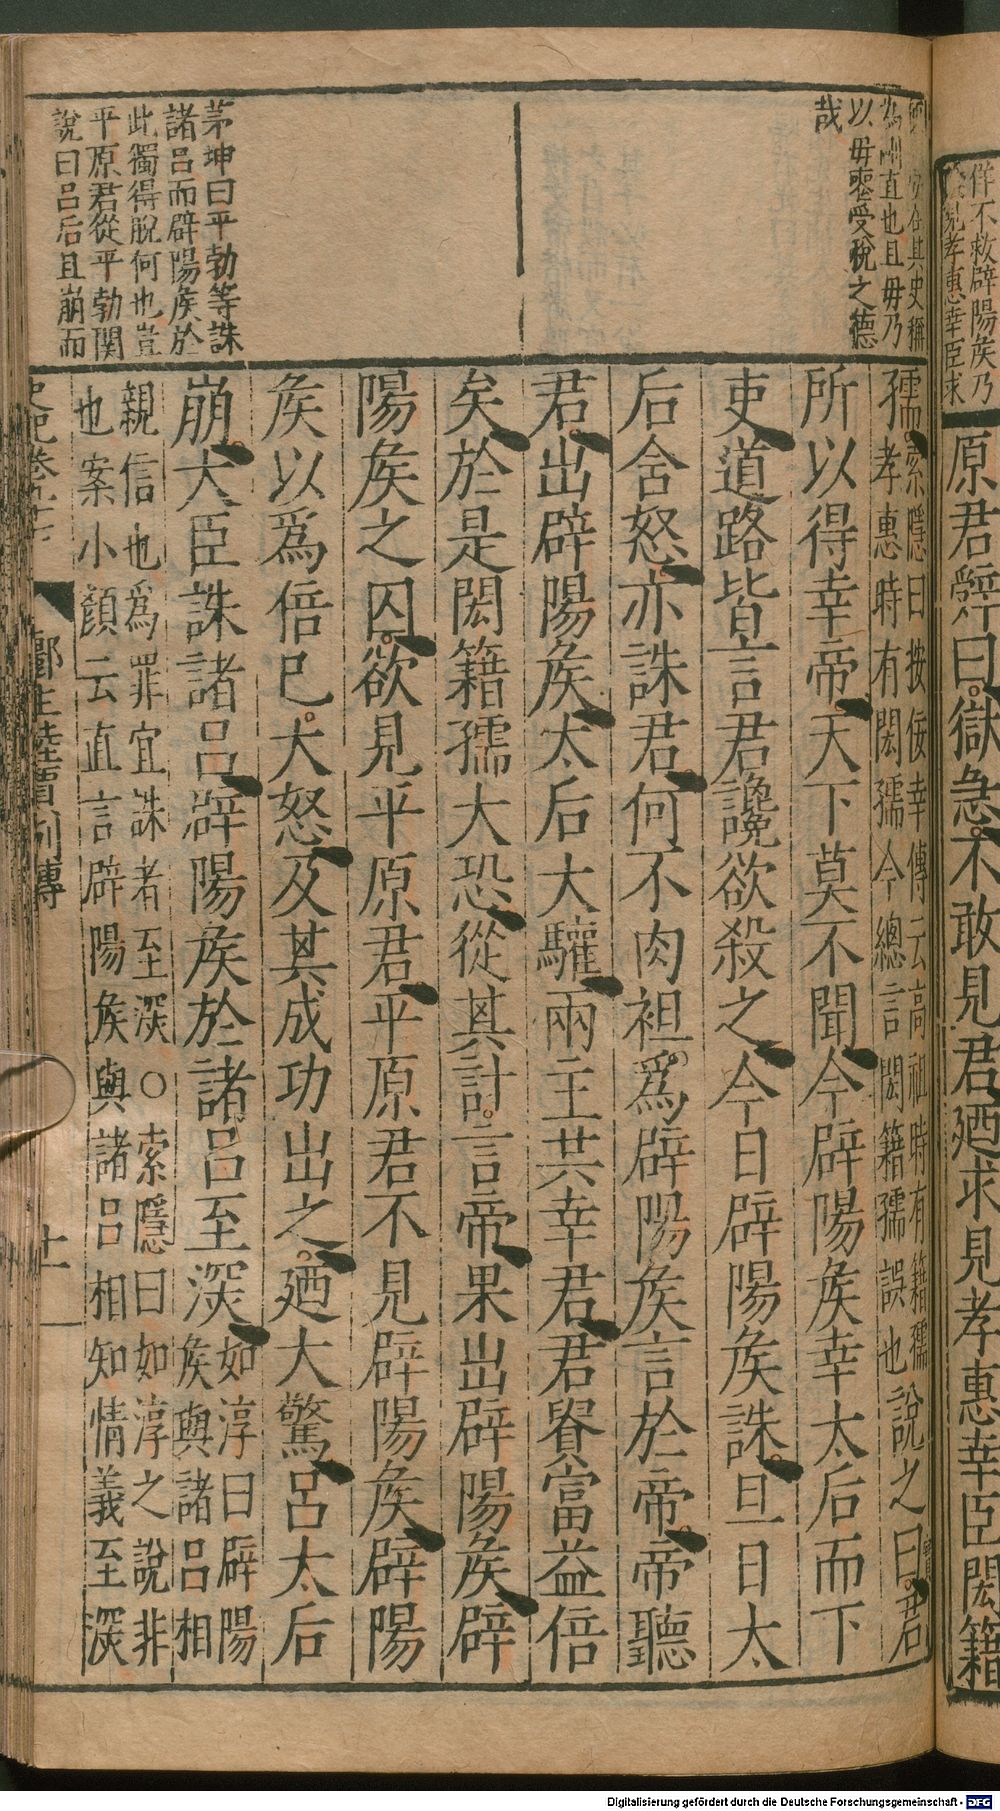 佯不救辟陽矦乃
見孝惠幸臣求
原君辤曰獄急不敢見君廼求見孝惠幸臣閎籍
其史稱
直也且毋乃
以毋喪受稅之德
哉
茅坤曰平勃等誅
諸呂而辟陽矦於
此獨得脫何也豈
平原君從平勃關
說曰呂后且崩而
孺索隱曰按佞幸傳云高祖時有籍孺
孝惠時有閎孺今總言閎籍孺誤也說之曰君
所以得幸帝天下莫不聞今辟陽矦幸太后而下
吏道路皆言君讒欲殺之今日辟陽矦誅旦日太
后含怒亦誅君何不肉袒爲辟陽矦言於帝帝聽
君出辟陽矦太后大驩兩主共幸君君貴富益倍
矣於是閎籍孺大恐從其計言帝果出辟陽矦辟
陽矦之囚欲見平原君平原君不見辟陽矦辟陽
矦以爲倍巳大怒及其成功出之廼大驚呂太后
崩大臣誅諸呂辟陽矦於諸呂至深如淳曰辟陽
矦與諸呂相
親信也爲罪宜誅者至深〇索隱曰如淳之說非
也案小顏云直言辟陽矦與諸呂相知情義至深
史記卷九十七
酈生陸賈列傳
十一
Digitalisierung gefördert durch die Deutsche Forschungsgemeinschaft - DFG